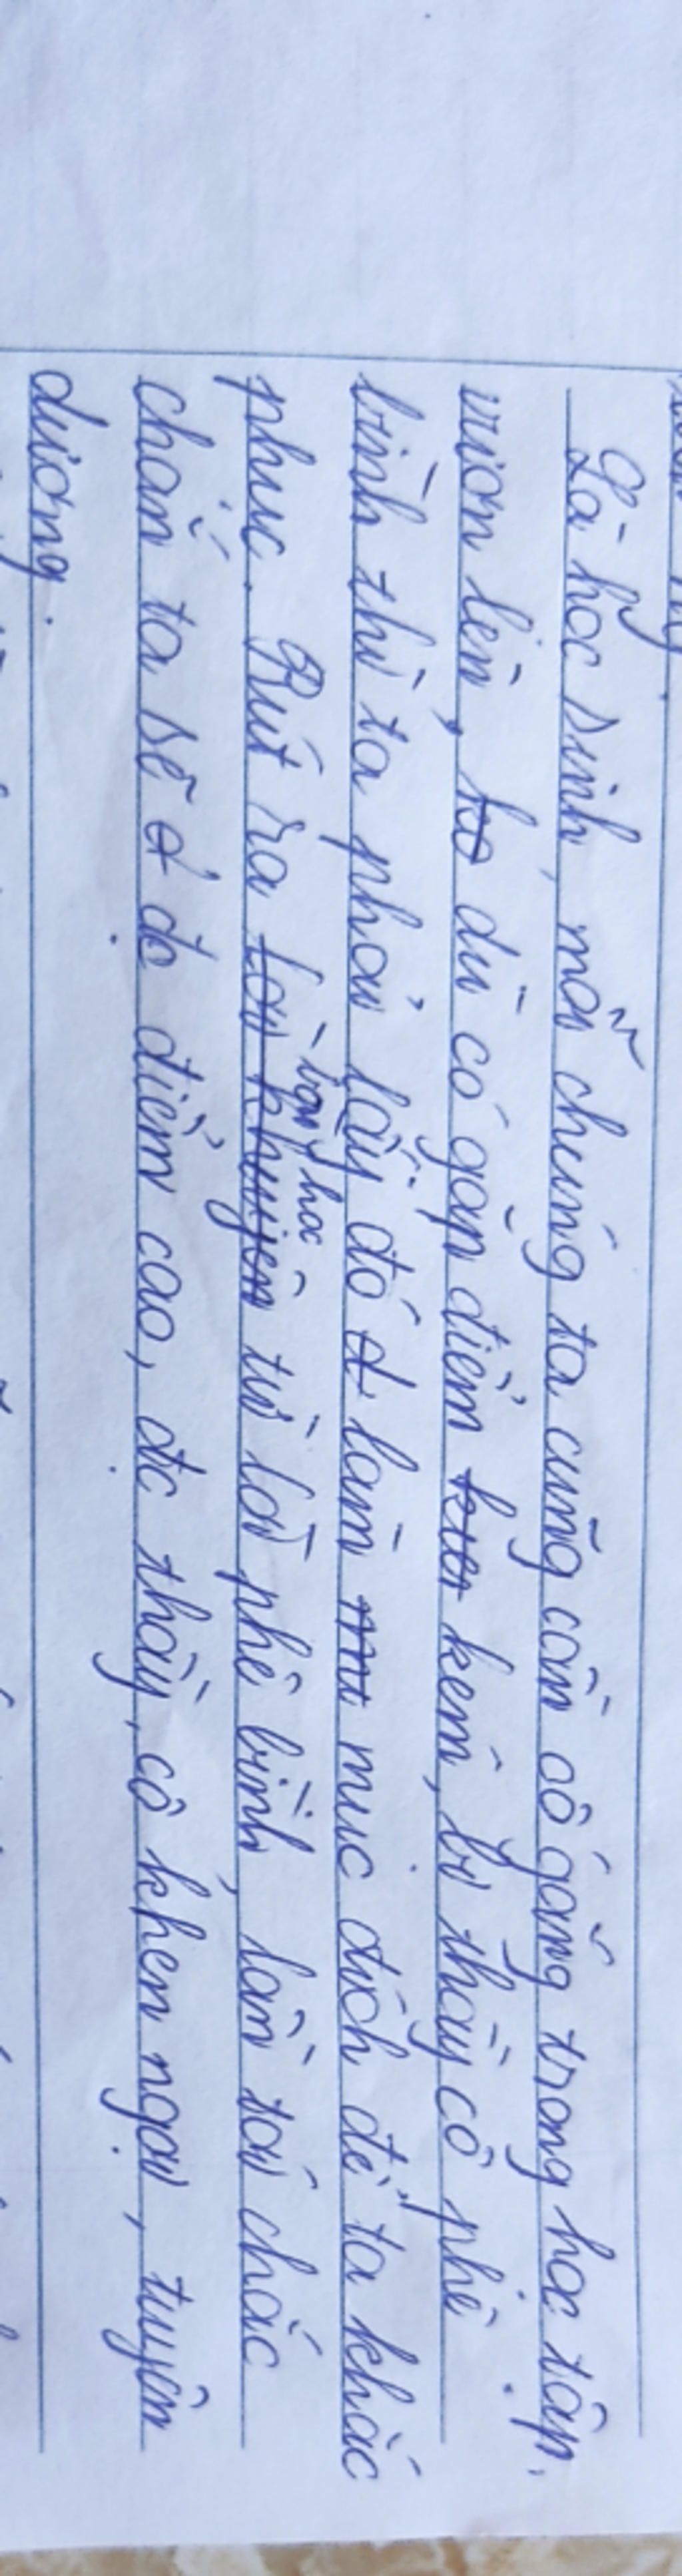 Là học sinh, mỗi chúng ta cũng cần cố gắng trong học tập,
vươn lên, dù có gặp điểm kém, bị thầy cô phê
bình thì ta phải lấy đó làm mục đích để ta khắc
phục. Rút ra bài học từ lời phê bình, lần tới chắc
chắn ta sẽ đc điểm cao, đc thầy, cô khen ngợi, tuyên
dương.